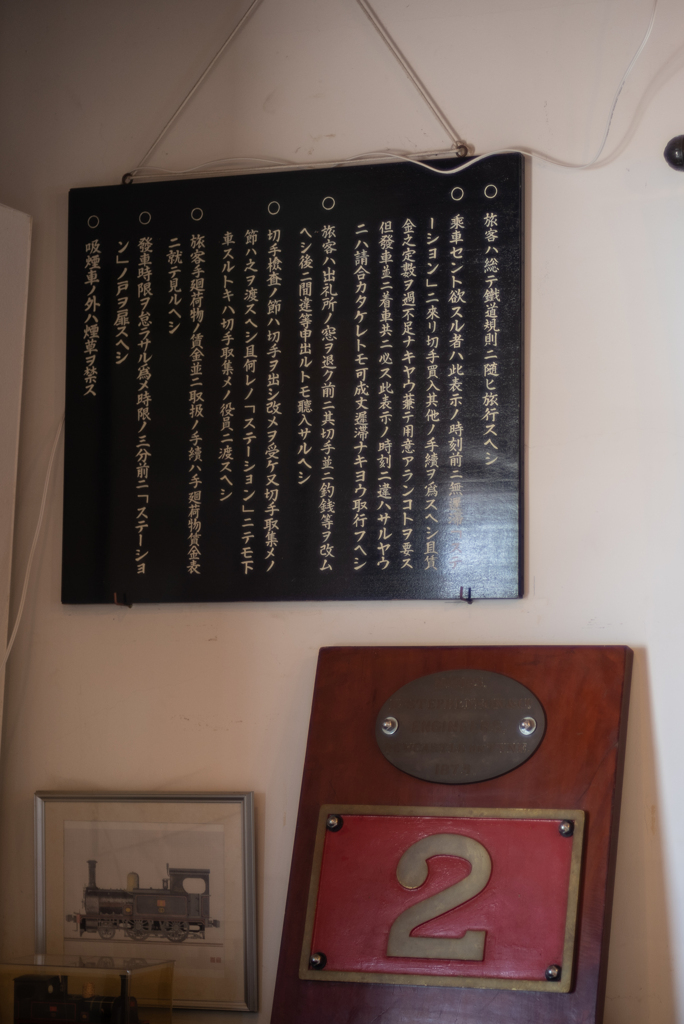 ○ 旅客ハ総テ鐵道規則ニ随ヒ旅行スヘシ
○ 乗車セント欲スル者ハ此表示ノ時刻前ニ無
ーション」ニ來リ切手買入其他ノ手續ヲ爲スヘシ且賃
金之定數ヲ過不足ナキヤウ兼テ用意アランコトヲ要ス
但發車並ニ着車共ニ必ス此表示ノ時刻ニ違ハサルヤウ
ニハ請合カタケレトモ可成丈遲滞ナキヨウ取行フヘシ
○ 旅客ハ出札所ノ窓ヲ退ク前ニ其切手並ニ釣銭等ヲ改ム
ヘシ後ニ間違等申出ルトモ聽入サルヘシ
○ 切手検査ノ節ハ切手ヲ出シ改メヲ受ケ又切手取集メノ
節ハ之ヲ渡スヘシ且何レノ「ステーション」ニテモ下
車スルトキハ切手取集メノ役員ニ渡スヘシ
○ 旅客手廻荷物ノ賃金並ニ取扱ノ手續ハ手廻荷物賃金表
ニ就テ見ルヘシ
○ 發車時限ヲ怠ラサル為メ時限ノ三分前ニ「ステーショ
ン」ノ戸ヲ扉スヘシ
○ 吸煙車ノ外ハ煙草ヲ禁ス
2